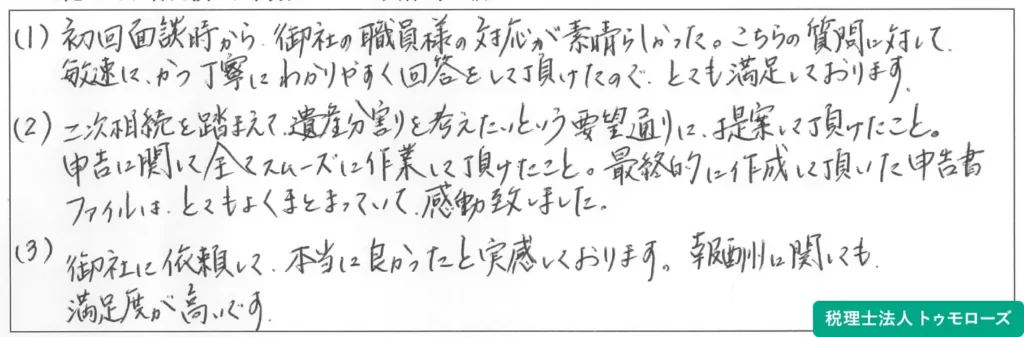 (1) 初回面談時から、御社の職員様の対応が素晴らしかった。こちらの質問に対して、
敏速に、かつ丁寧にわかりやすく回答をして頂けたので、とても満足しております。
(2) 二次相続を踏まえて、遺産分割を考えたいという要望通りに、提案して頂けたこと。
申告に関して全てスムーズに作業して頂けたこと。最終的に作成して頂いた申告書
ファイルは、とてもよくまとまっていて、感動致しました。
(3) 御社に依頼して、本当に良かったと実感しております。報酬に関しても、
満足度が高いです。
税理士法人トゥモローズ